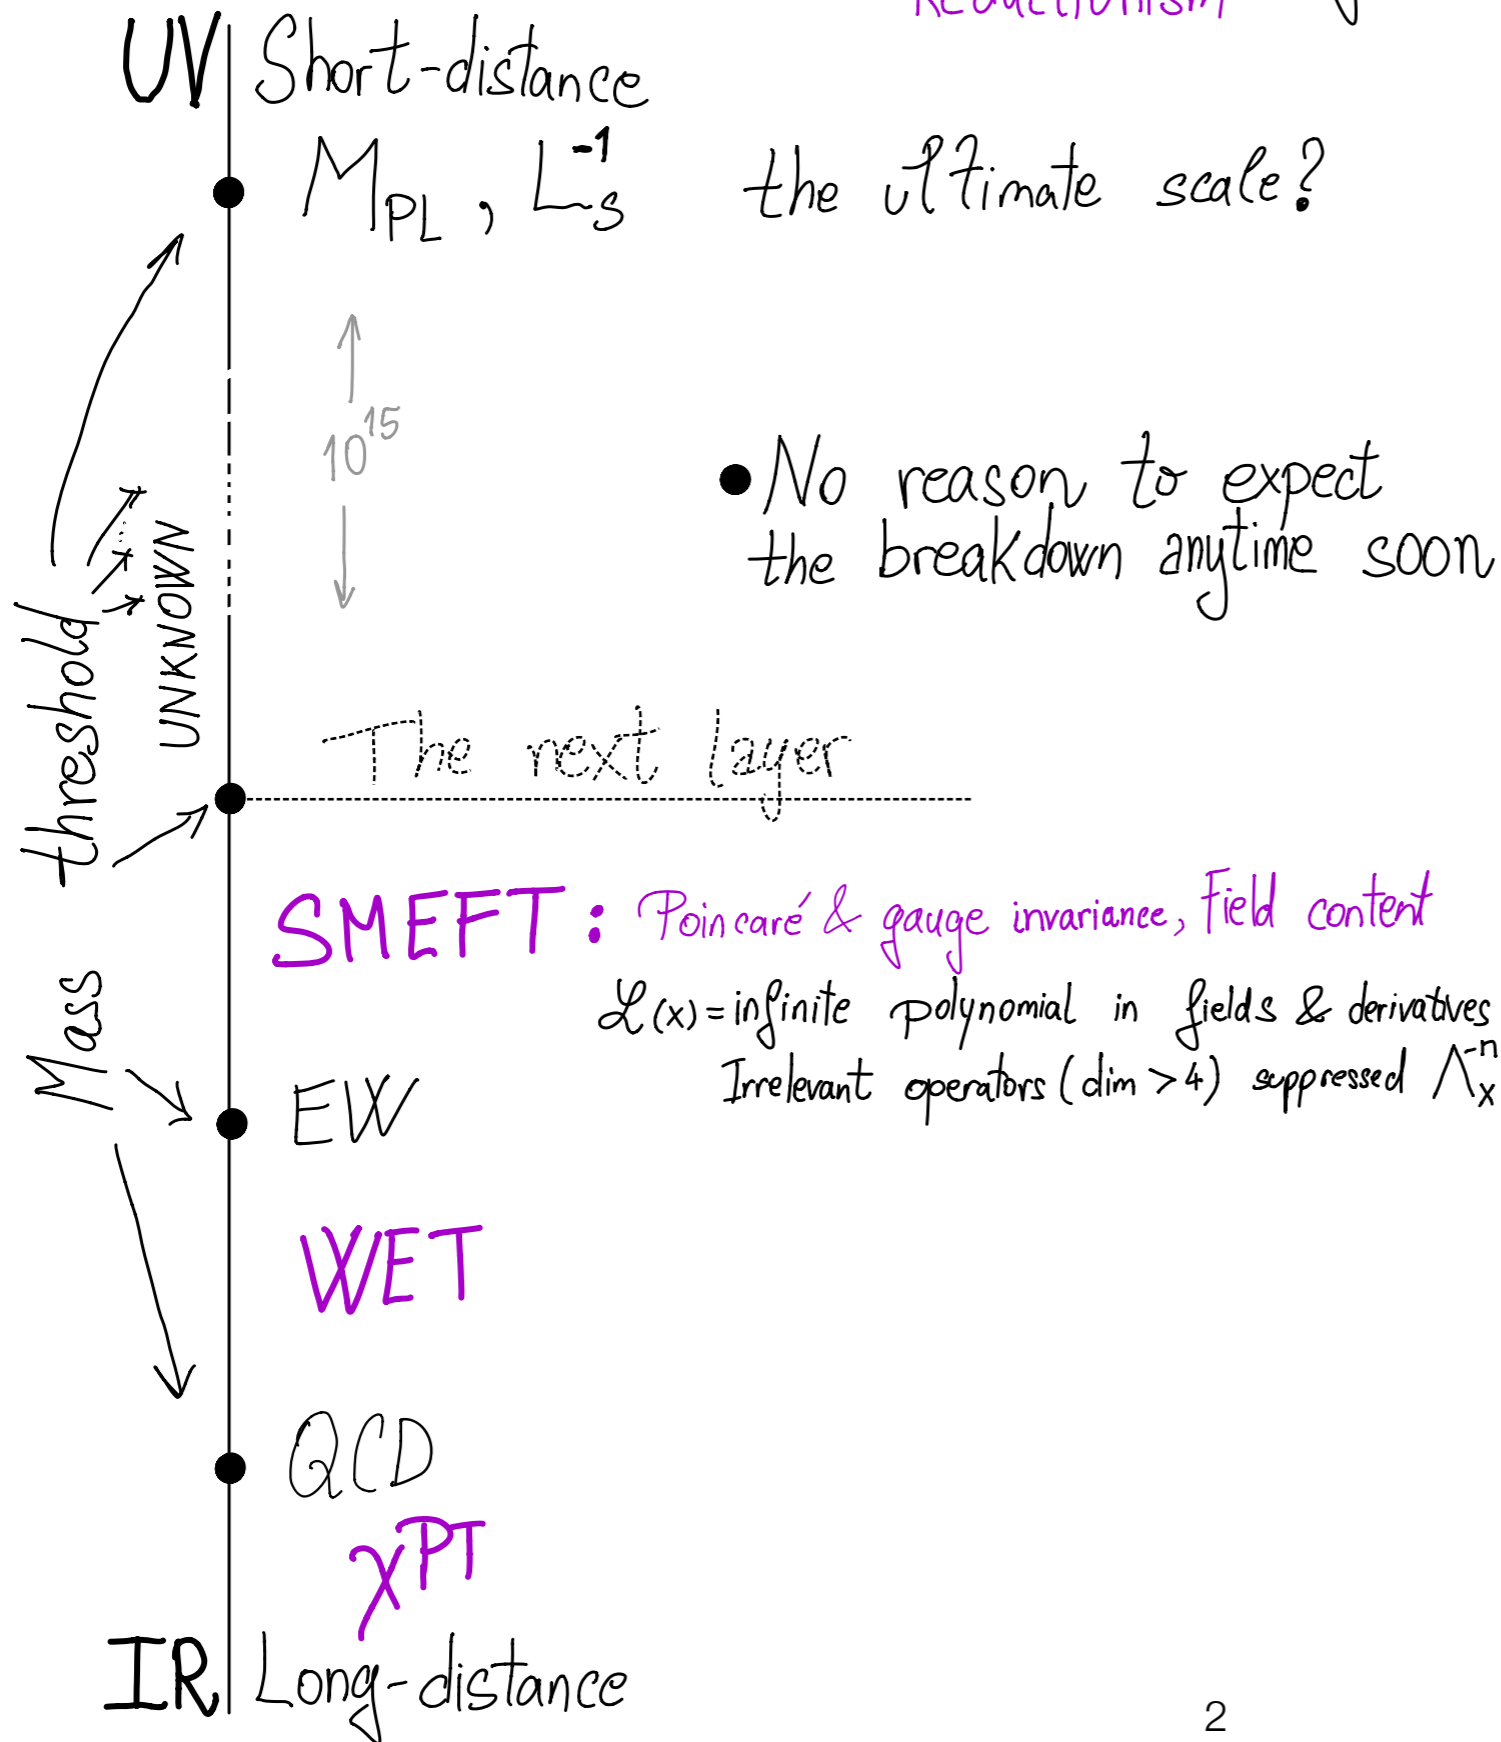 Reductionism
UV Short-distance
M_PL , L_s^-1 the ultimate scale?
10^15
• No reason to expect
the breakdown anytime soon
UNKNOWN
Mass threshold
The next layer
SMEFT : Poincaré & gauge invariance, Field content
ℒ(x) = infinite polynomial in fields & derivatives
Irrelevant operators (dim > 4) suppressed Λ_x^-n
EW
WET
QCD
χPT
IR Long-distance
2